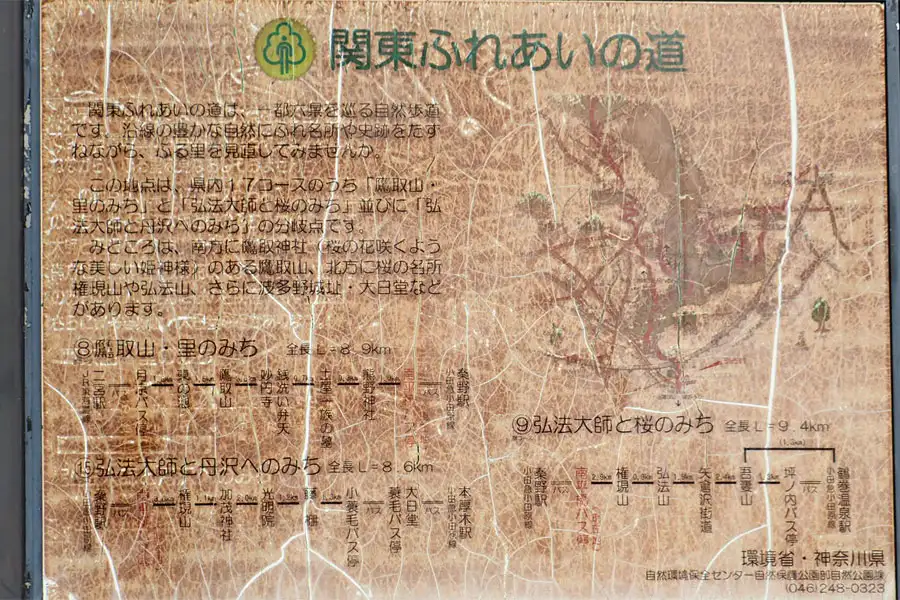 関東ふれあいの道
関東ふれあいの道は、一都六県を巡る自然歩道
です。沿線の豊かな自然にふれ名所や史跡をたず
ねながら、ふる里を見直してみませんか。
この地点は、県内17コースのうち「鷹取山・
里のみち」と「弘法大師と桜のみち」並びに「弘
法大師と丹沢へのみち」の分岐点です。
みどころは、南方に鷹取神社（桜の花咲くよう
な美しい姫神様）のある鷹取山、北方に桜の名所
権現山や弘法山、さらに波多野城址・大日堂など
があります。
⑧鷹取山・里のみち 全長L=8.9km
二宮駅
月京バス停
鷹取山
妙円寺
銭洗い弁天
土屋一族の墓
熊野神社
バス
秦野駅
小田急小田原線
⑨弘法大師と桜のみち 全長L=9.4km
小田急小田原線
秦野駅
バス
権現山
弘法山
矢倉沢街道
吾妻山
坪ノ内バス停
バス
鶴巻温泉駅
小田急小田原線
⑮弘法大師と丹沢へのみち 全長L=8.6km
小田急小田原線
秦野駅
バス
権現山
加茂神社
光明院
小蓑毛バス停
バス
蓑毛バス停
大日堂
バス
本厚木駅
小田急小田原線
環境省・神奈川県
自然環境保全センター自然保護公園部自然公園課
(046)248-0323